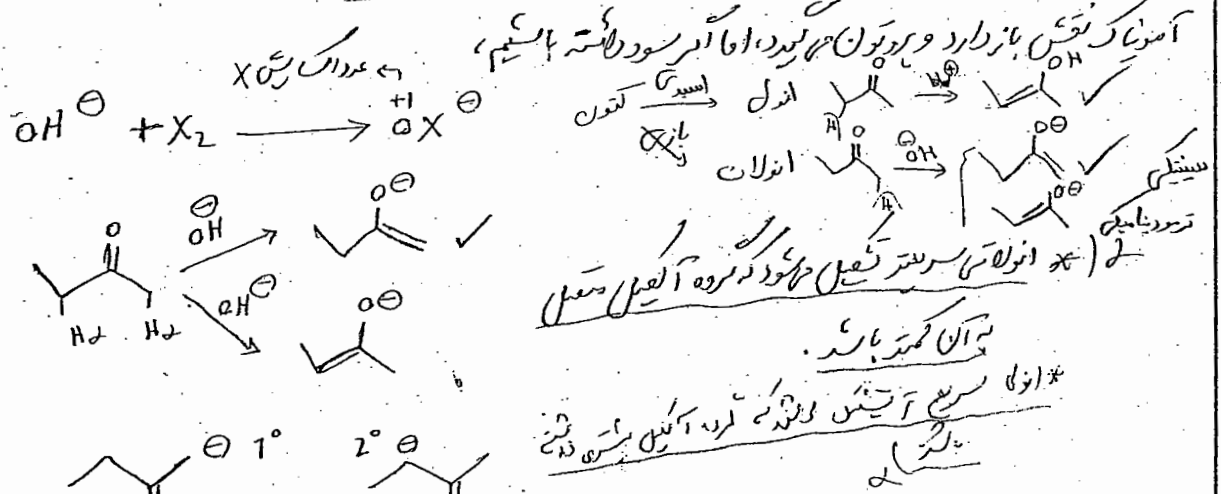 آمونیاک نقش باز دارد و پروتون می گیرد، اما اگر سود داشته باشیم،
عدد اکسایش X
OH⊖ + X₂ → OX⊖
+1
کتون اسیدی انول H⊕ OH ✓
بازی انولات ⊖OH O⊖ ✓
سینتیکی
O⊖
ترمودینامیکی
* انولاتی سریعتر تشکیل می شود که گروه آلکیل متصل
به آن کمتر باشد.
* انولی سریع تر تشکیل که گروه آلکیل بیشتری داشته
باشد
O ⊖OH O⊖ ✓
Hα Hα OH⊖ O⊖
⊖ 1° 2° ⊖